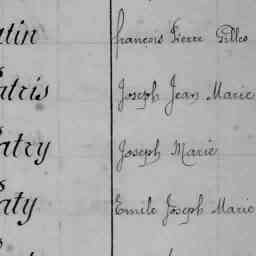 atin François Pierre Gilles
atris Joseph Jean Marie
atry Joseph Marie
aty Emile Joseph Marie